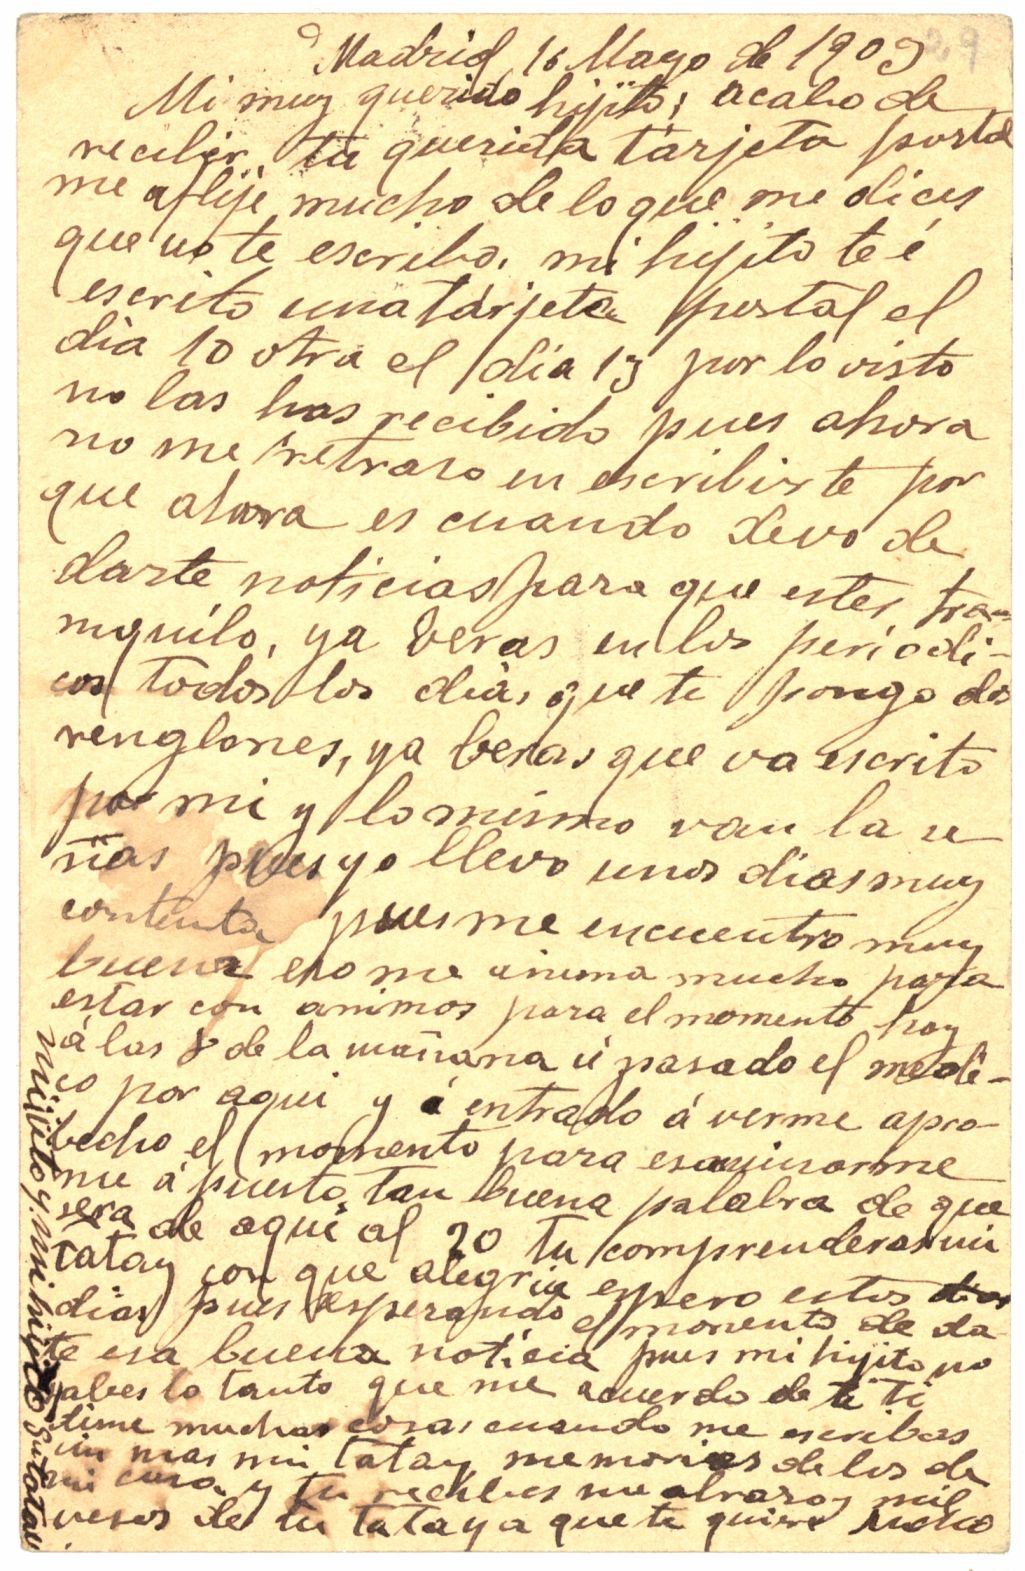 29
Madrid, 16 Mayo de 1909
Mi muy querido hijito; acabo de
recibir, tu querida tarjeta postal
me aflije mucho de lo que me dices
que no te escribo, mi hijito te é
escrito una tarjeta postal el
dia 10 otra el dia 13 por lo visto
no las has recibido pues ahora
no me retraso en escribirte por
que ahora es cuando devo de
darte noticias para que estes tra-
nquilo, ya veras en los periodi-
cos todos los dias que te pongo dos
renglones, ya beras que va escrito
por mi y lo mismo van la se
ñas pues yo llevo unos dias muy
contenta pues me encuentro muy
buena eso me anima mucho para
estar con animos para el momento hoy
á las 8 de la mañana á pasado el medi-
co por aqui y á entrado á verme apro-
becho el momento para esaminarme
me á puesto tan buena palabra de que
sera de aqui al 20 tu comprenderas mi
tatay con que alegria espero estos
dias pues esperando el momento de da
te esa buena noticia pues mi hijito no
sabes lo tanto que me acuerdo de ti
dime muchas cosas cuando me escribas
sin mas mi tatay memorias de los de
mi casa y tu recibes un abrazo y mil
vesos de tu tataya que te quiere mucho
mi hijito su tatay